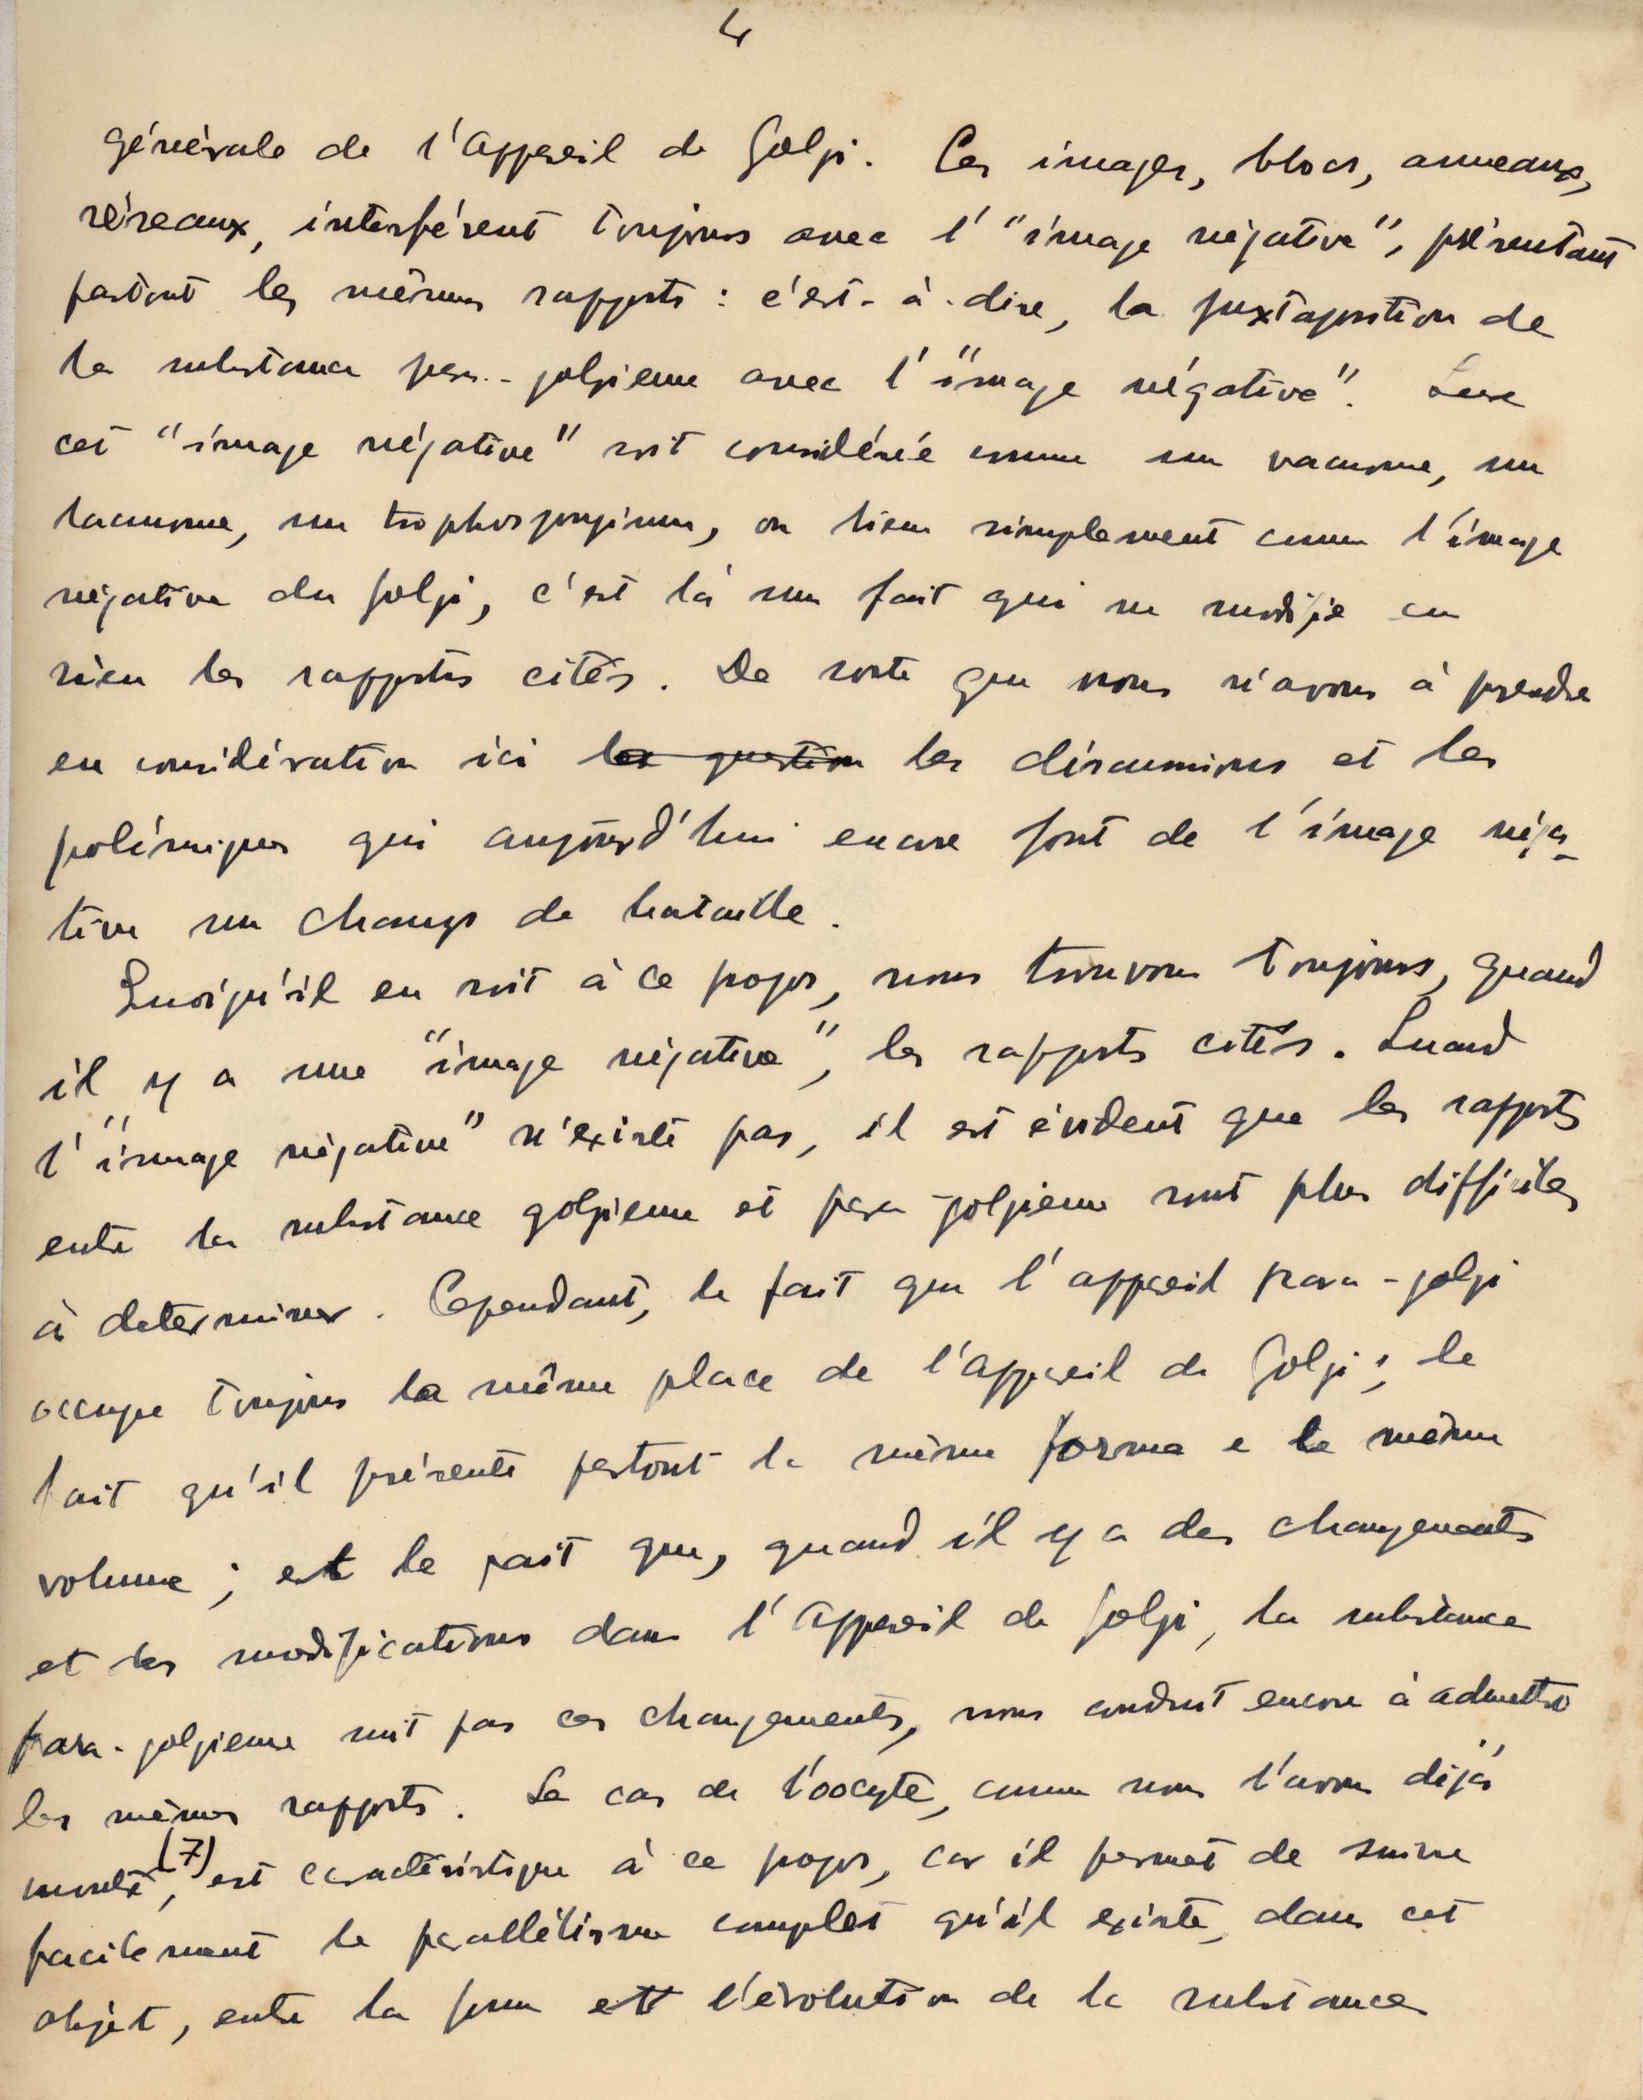 4
générale de l'Appareil de Golgi. Ces images, blocs, anneaux,
réseaux, interférent toujours avec l'"image négative", présentant
partout les mêmes rapports : c'est-à-dire, la juxtaposition de
la substance para-golgienne avec l'"image négative". Que
cet "image négative" soit considérée comme un vacuome, un
lacunome, un trophospongium, ou bien simplement comme l'image
négative du Golgi, c'est là un fait qui ne modifie en
rien les rapports cités. De sorte que nous n'avons à prendre
en considération ici la question les discussions et les
polémiques qui aujourd'hui encore font de l'image néga-
tive un champ de bataille.
Quoiqu'il en soit à ce propos, nous trouvons toujours, quand
il y a une "image négative", les rapports cités. Quand
l'"image négative" n'existe pas, il est évident que les rapports
entre la substance golgienne et para-golgienne sont plus difficiles
à determiner. Cependant, le fait que l'appareil para-golgi
occupe toujours la même place de l'Appareil de Golgi ; le
fait qu'il présente partout la même forma e le même
volume ; et le fait que, quand il y a des changements
et des modifications dans l'Appareil de Golgi, la substance
para-golgienne suit pas ces changements, nous conduit encore à admettre
les mêmes rapports. Le cas de l'oocyte, comme nous l'avons déjà
montré (7), est caractéristique à ce propos, car il permet de suivre
facilement le parallélisme complet qu'il existe, dans cet
objet, entre la forme et l'évolution de la substance